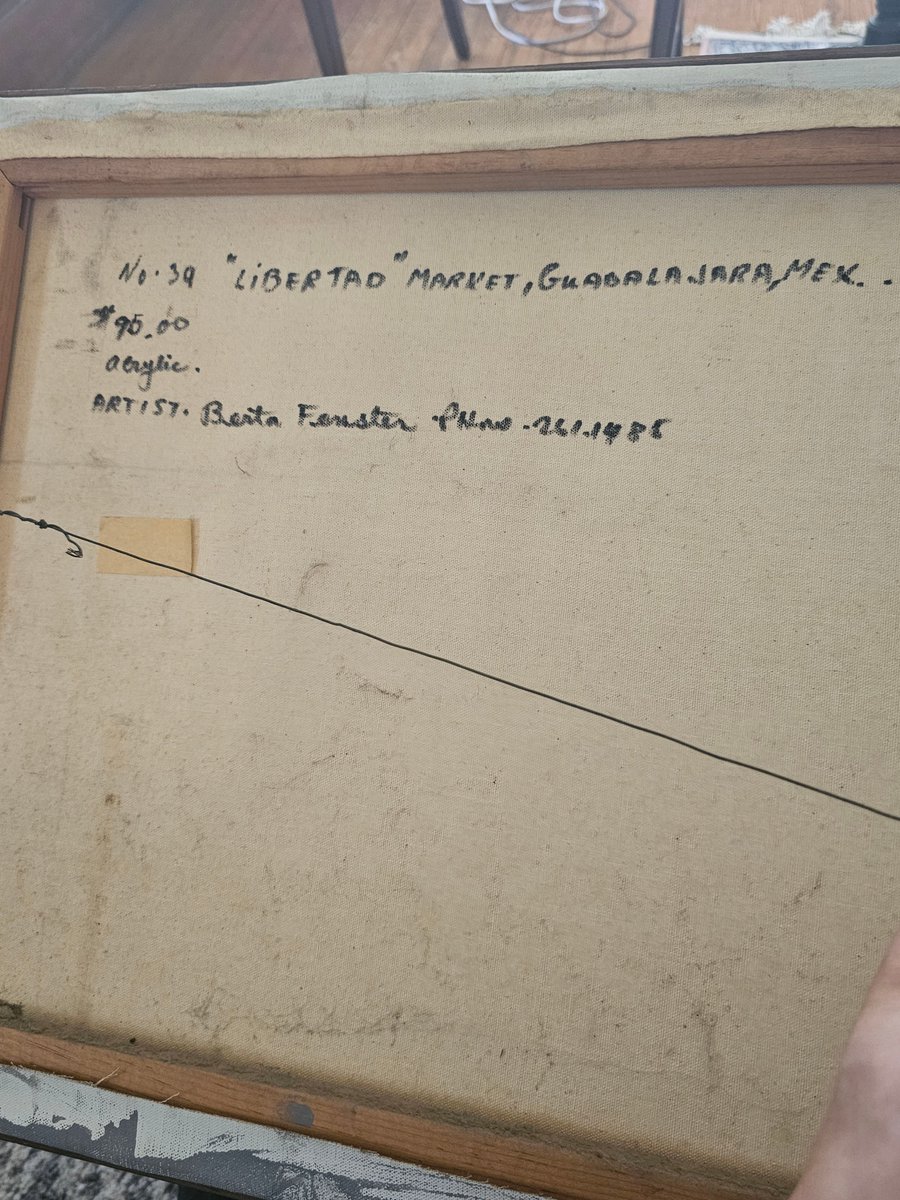 No. 39 "LiBERTAD" MARKET, GUADALAJARA, MEX..
$95.00
acrylic.
ARTIST. Berta Fenster 261.1485